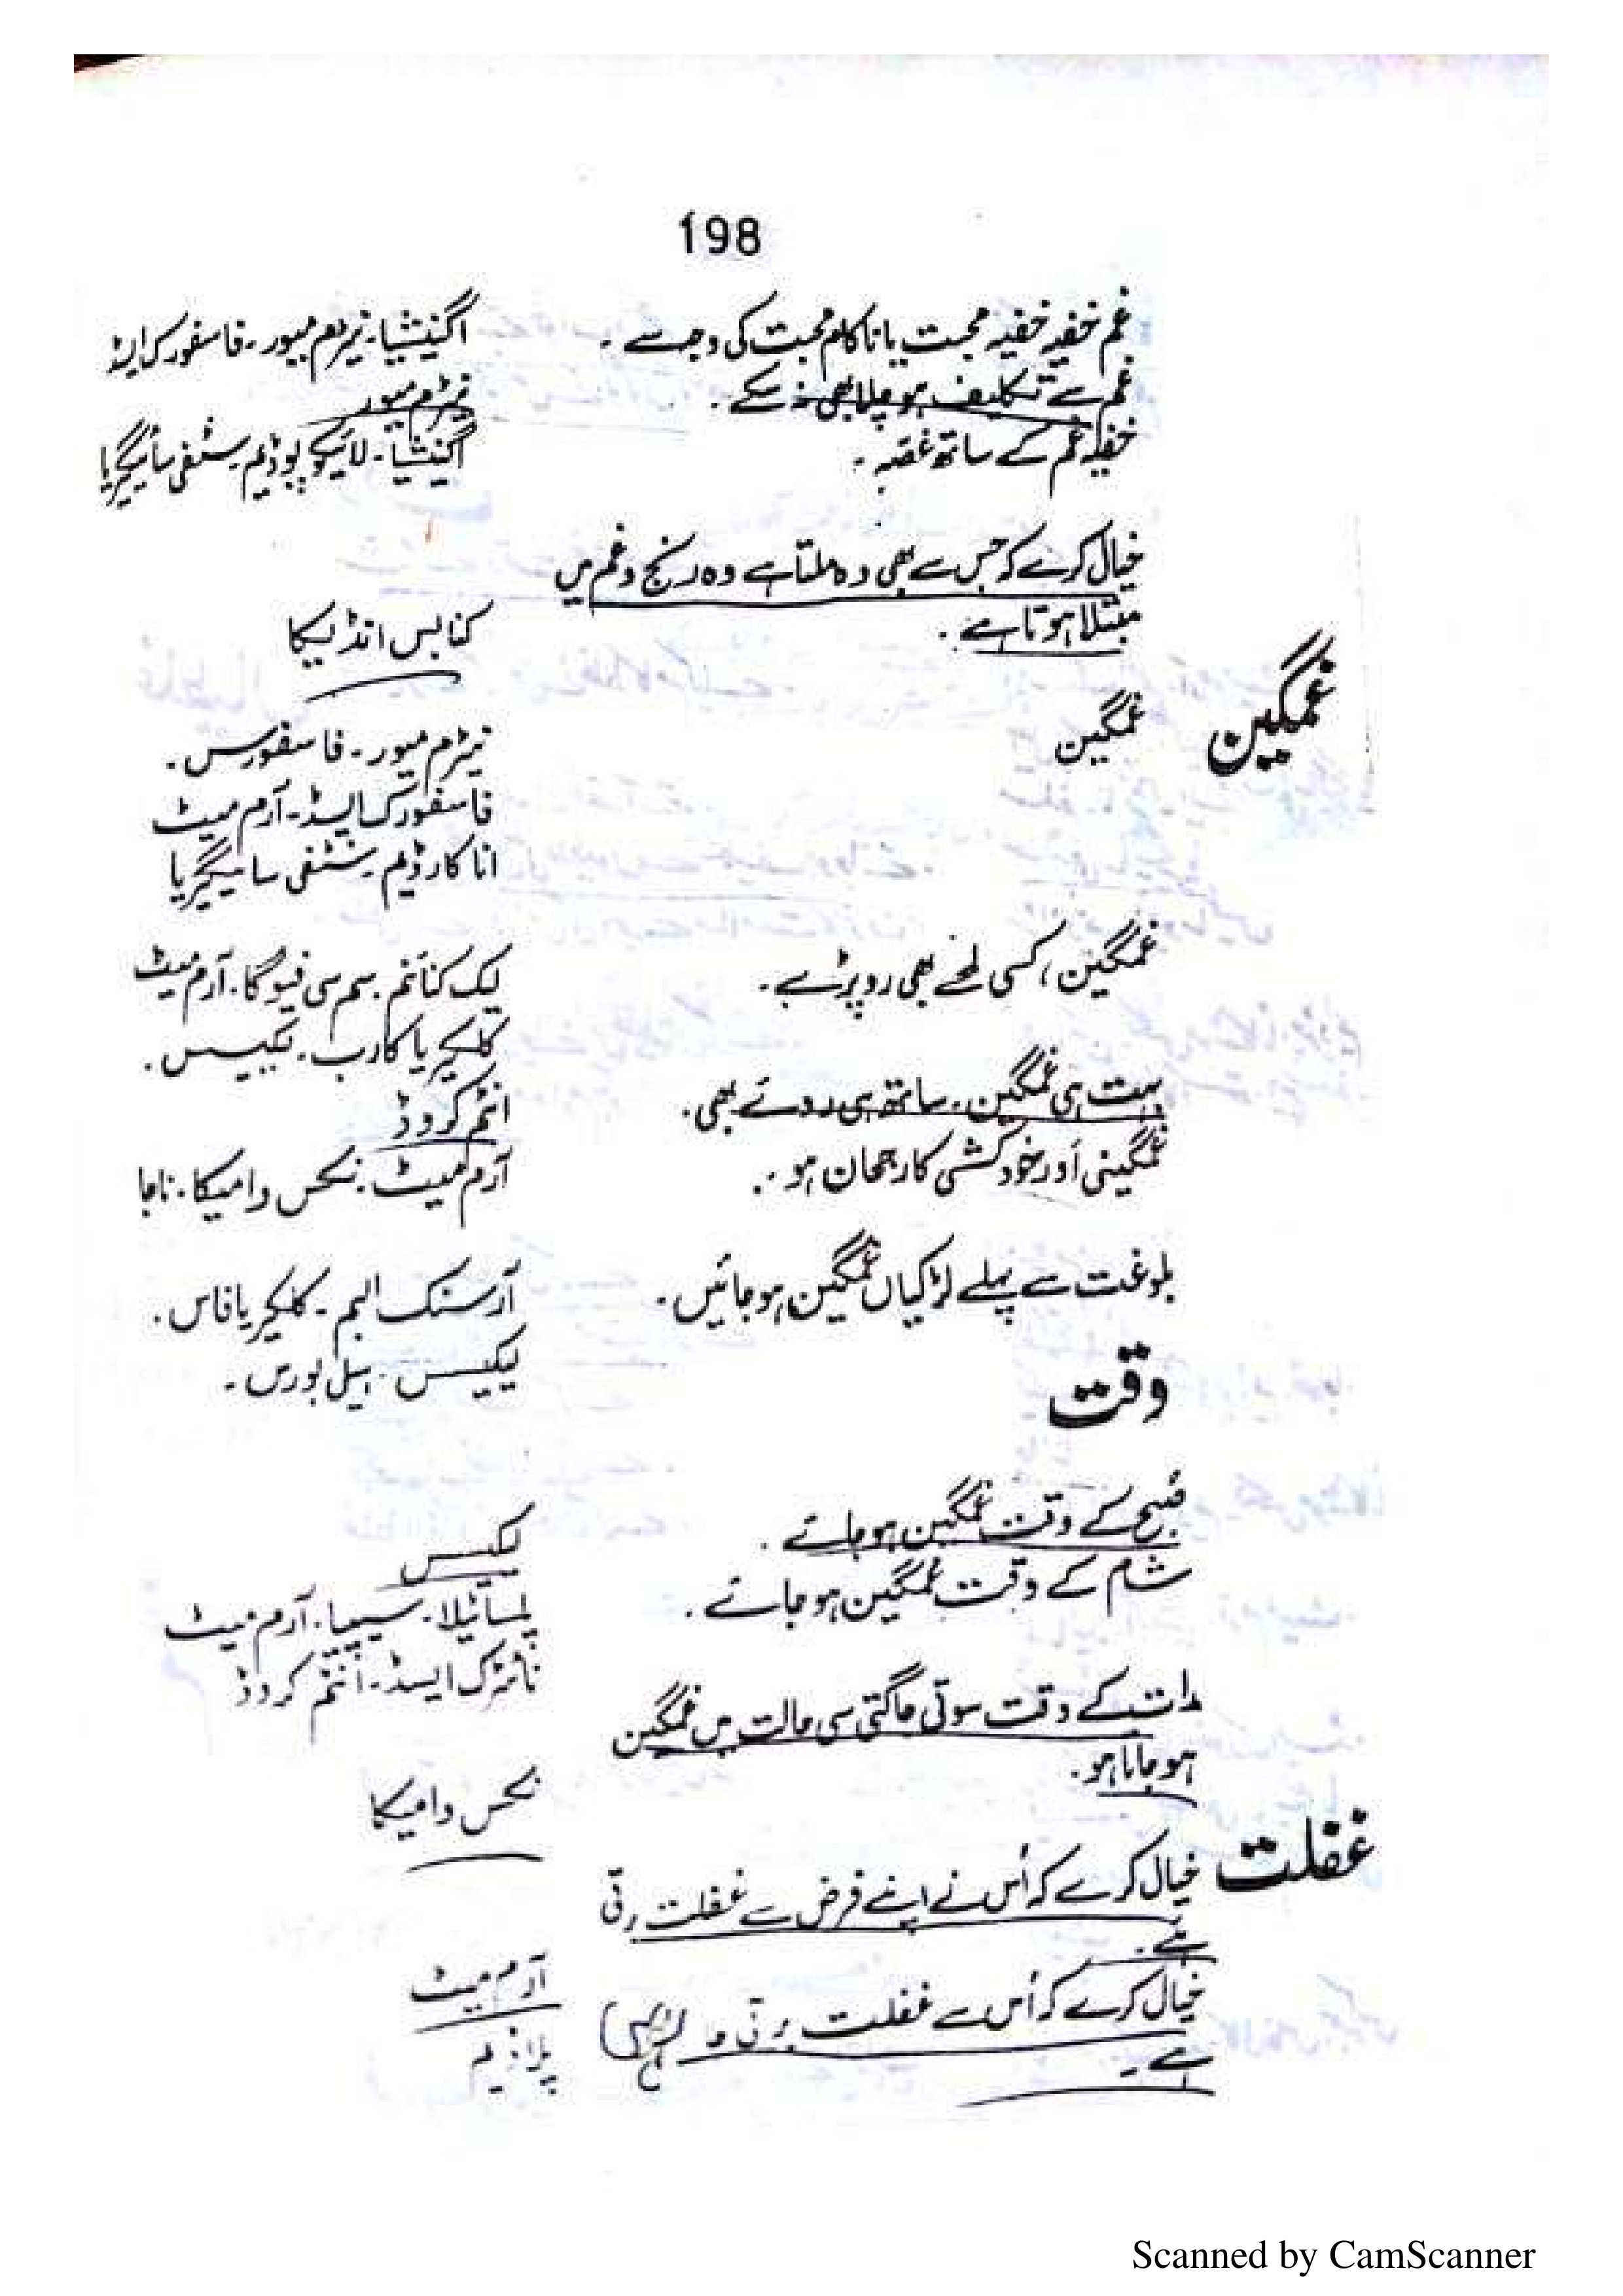 198
غم خفیہ خفیہ محبت یا ناکام محبت کی وجہ سے ۔ اگنیشیا۔ نیٹرم میور۔ فاسفورک ایسڈ
غم سے تکلیف ہو چلا بھی نہ سکے ۔ نیٹرم میور
خفیہ غم کے ساتھ غصہ ۔ اگنیشیا۔ لائیکوپوڈیم۔ سٹفی سائیگریا
خیال کرے کہ جس سے بھی وہ ملتا ہے وہ رنج و غم میں
مبتلا ہوتا ہے ۔ کنابس انڈیکا
غمگین غمگین نیٹرم میور۔ فاسفورس ۔
فاسفورک ایسڈ۔ آرم میٹ
اناکارڈیم۔ سٹفی سائیگیریا
غمگین، کسی لمحے بھی رو پڑے ۔ لیک کنائنم۔ سمی سی فیوگا۔ آرم میٹ
کلکیریا کارب۔ لیکیسس ۔
بہت ہی غمگین۔ ساتھ ہی روئے بھی ۔ انٹم کروڈ
غمگینی اور خودکشی کا رجحان ہو ۔ آرم میٹ۔ نکس وامیکا۔ ناجا
بلوغت سے پہلے لڑکیاں غمگین ہو جائیں ۔ آرسنک البم ۔ کلکیریا فاس ۔
لیکیسس ۔ ہیلی بورس ۔
وقت
صبح کے وقت غمگین ہو جائے ۔ لیکیسس
شام کے وقت غمگین ہو جائے ۔ پلساٹیلا۔ سیپیا۔ آرم میٹ
نائٹرک ایسڈ۔ انٹم کروڈ
رات کے وقت سوتی جاگتی سی حالت میں غمگین
ہو جاتا ہو ۔ نکس وامیکا
غفلت خیال کرے کہ اُس نے اپنے فرض سے غفلت برتی
ہے ۔ آرم میٹ
خیال کرے کہ اُس سے غفلت برتی جا رہی
ہے ۔ پلاڈیم
Scanned by CamScanner